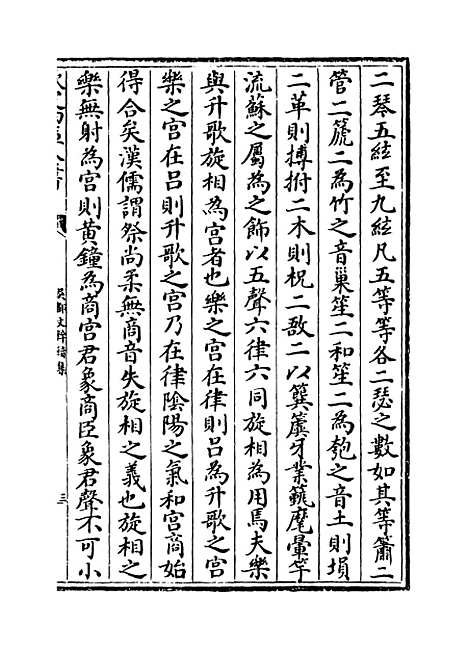 二琴五絃至九絃凡五等等各二瑟之數如其等簫二
管二箎二為竹之音巢笙二和笙二為匏之音土則塤
二革則搏拊二木則柷二敔二以簨簴牙業䕫麾翬竿
流蘇之屬為之飾以五聲六律六同旋相為用焉夫樂
與升歌旋相為宮者也樂之宮在律則呂為升歌之宮
樂之宮在呂則升歌之宮乃在律陰陽之氣和宮商始
得合矣漢儒謂祭尚柔無商音失旋相之義也旋相之
樂無射為宮則黄鐘為商宮君象商臣象君聲不可小
吳都文粹續集
三